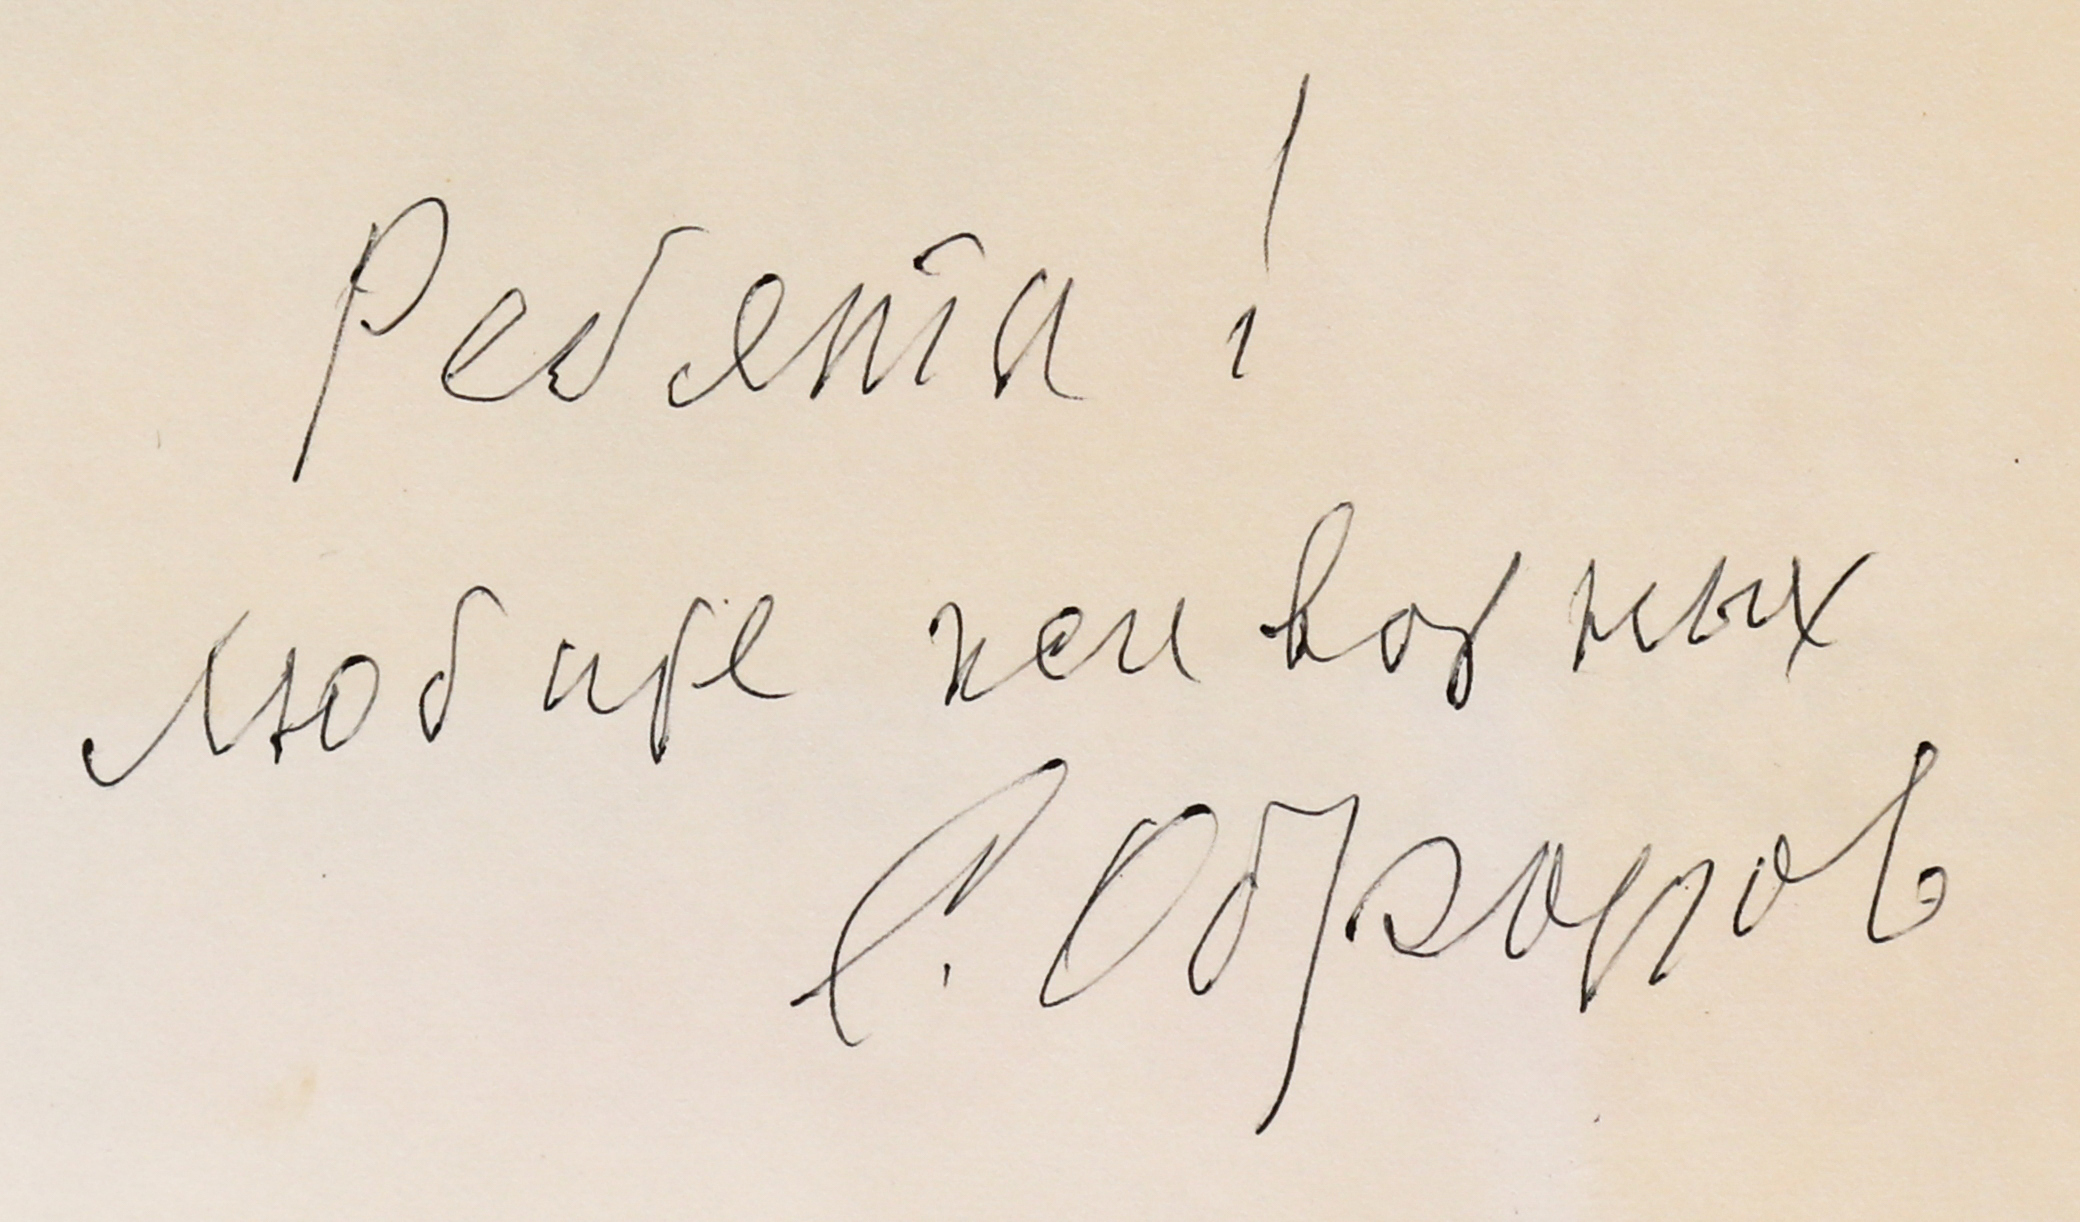 Ребята!
любите животных
С. Образцов